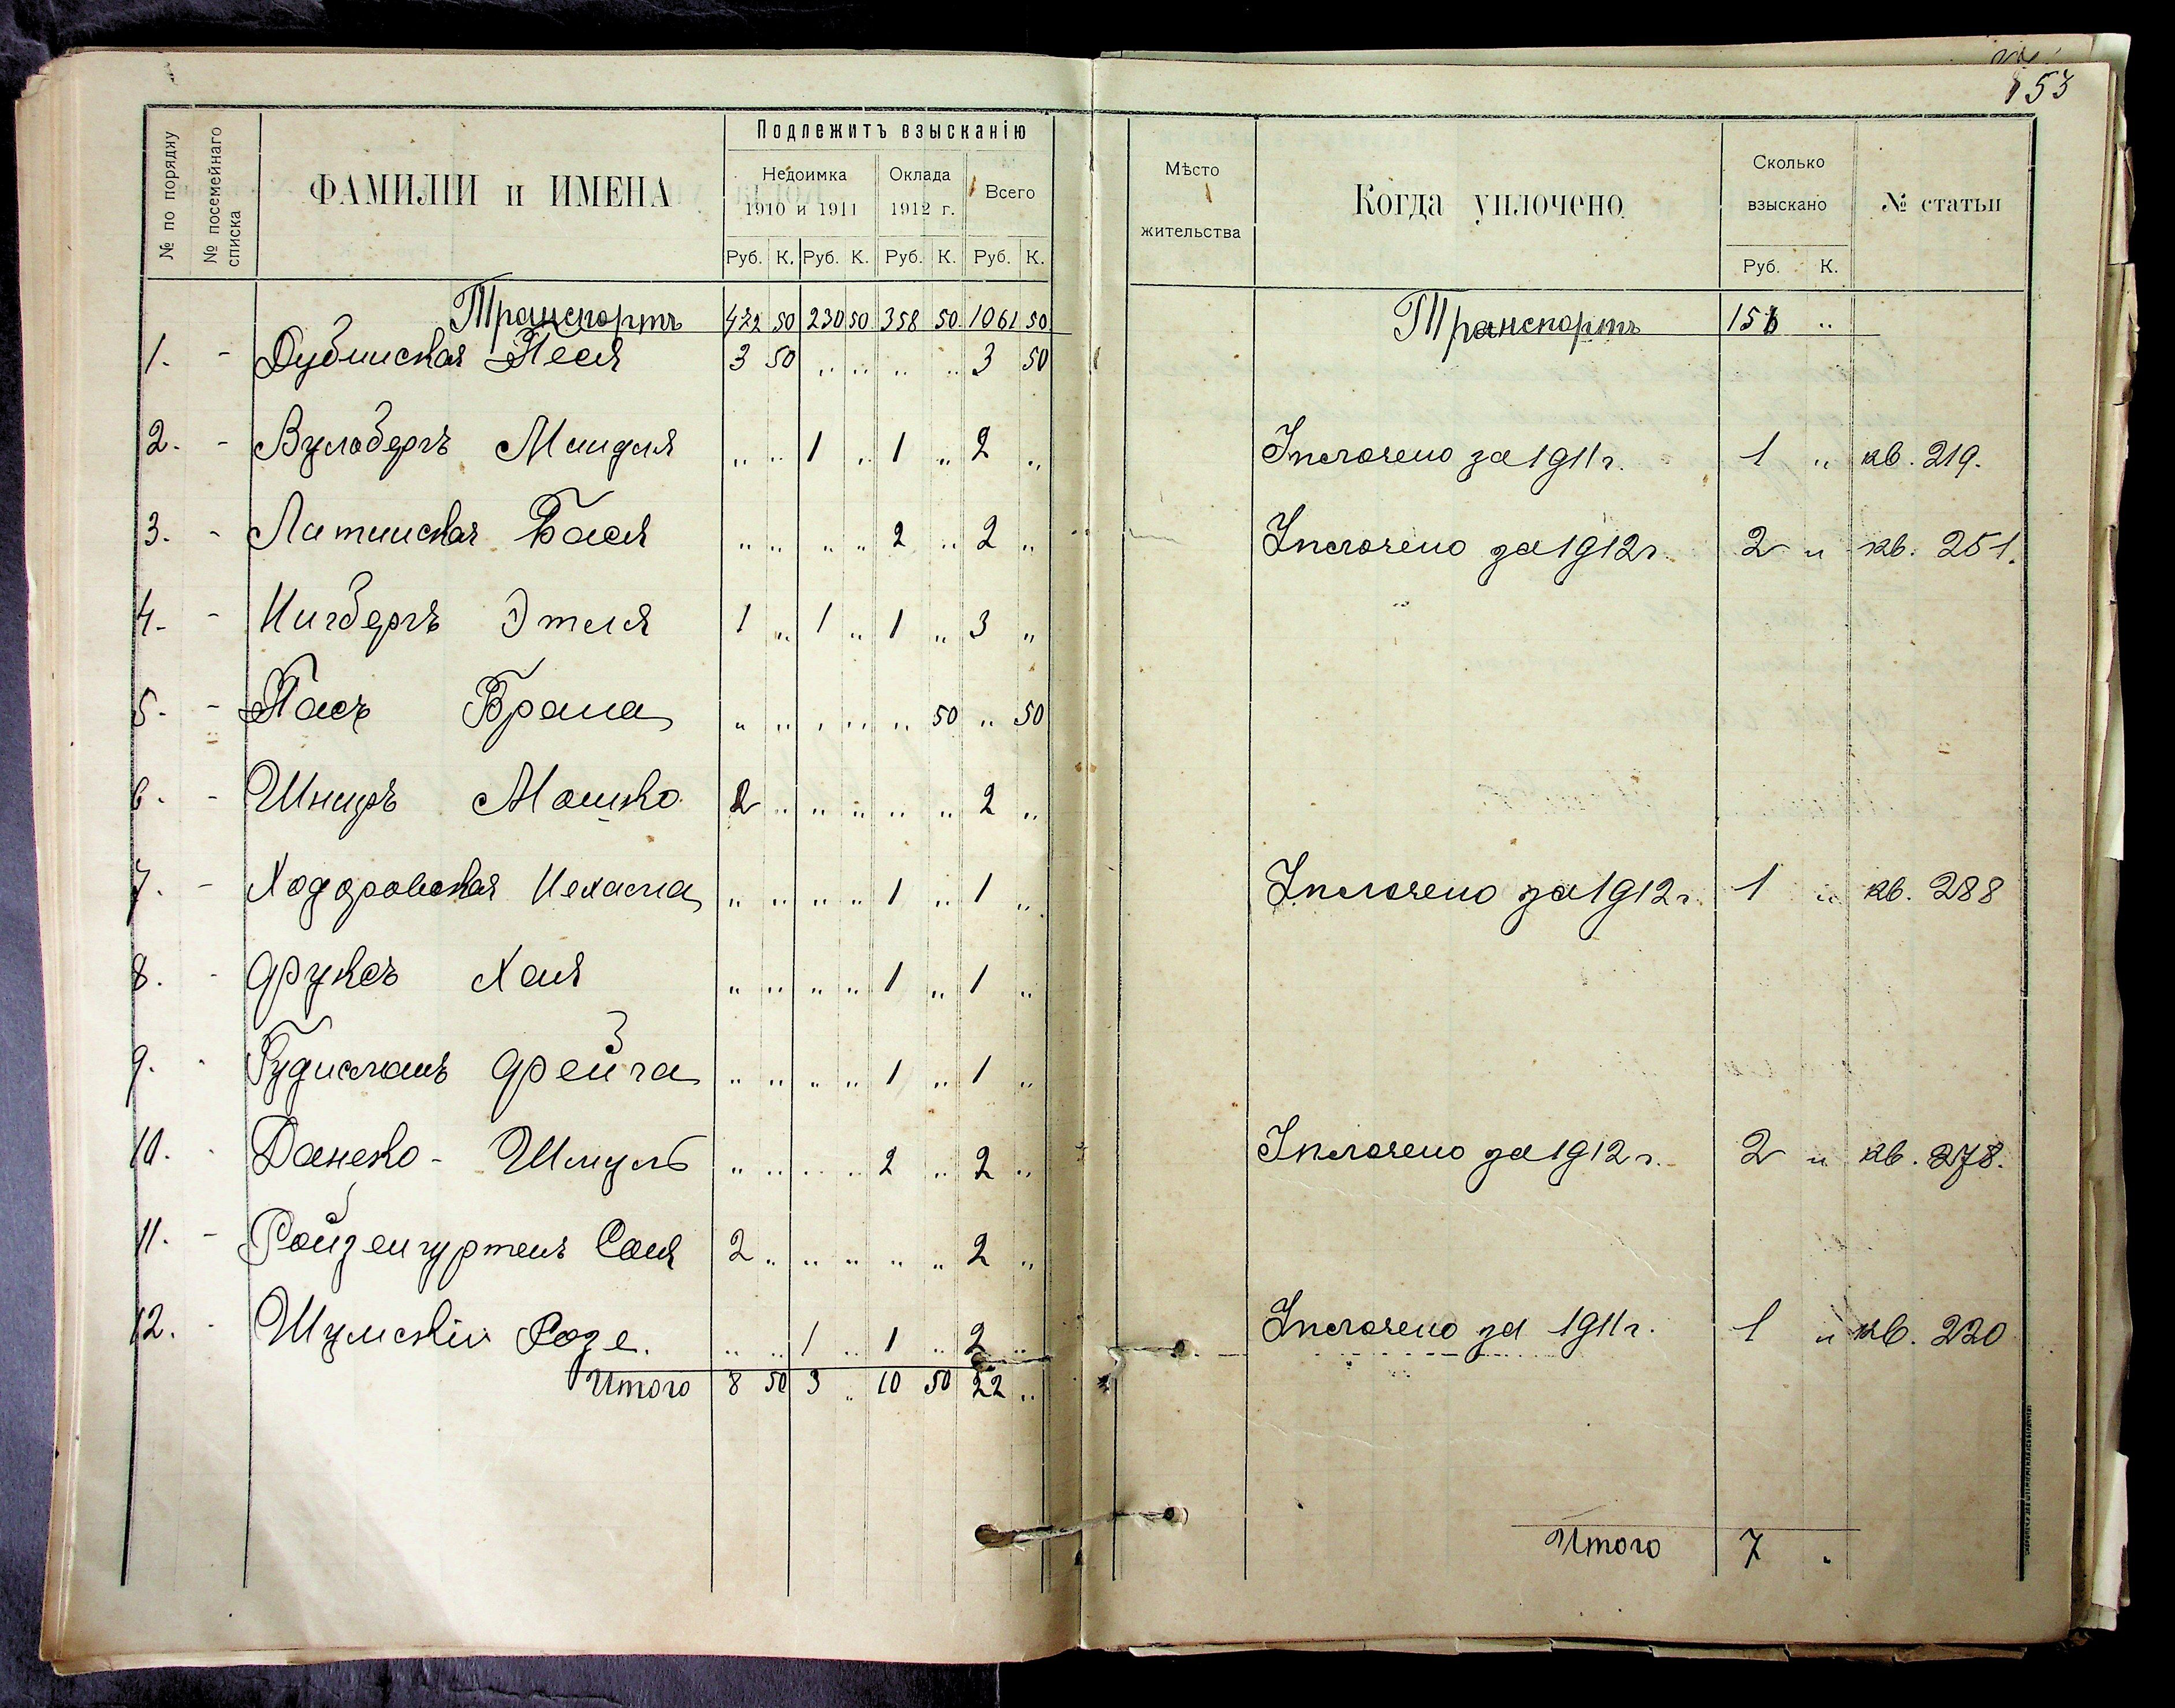 153
№ по порядку
№ посемейнаго списка
ФАМИЛІИ и ИМЕНА
Подлежитъ взысканію
Недоимка
1910 и 1911
Оклада
1912 г.
Всего
Руб. К. Руб. К. Руб. К. Руб. К.
Мѣсто
жительства
Когда уплочено
Сколько
взыскано
Руб. К.
№ статьи
Транспортъ 472 50 230 50 358 50 1061 50 Транспортъ 156 "
1. - Дубинская Песя 3 50 " " " " 3 50
2. - Вулобергъ Миндля " " 1 " 1 " 2 " Уплочено за 1911 г. 1 " кв. 219.
3. - Латинская Бася " " " " 2 " 2 " Уплочено за 1912 г. 2 " кв. 251.
4. - Нигбергъ Этля 1 " 1 " 1 " 3 "
5. - Пасъ Брана " " " " " 50 " 50
6. - Шниръ Мошко 2 " " " " " 2 "
7. - Ходоровская Нехама " " " " 1 " 1 " Уплочено за 1912 г. 1 " кв. 288
8. - Фуксъ Хая " " " " 1 " 1 "
9. - Гудисманъ Фрейга " " " " 1 " 1 "
10. - Данско - Шмуль " " " " 2 " 2 " Уплочено за 1912 г. 2 " кв. 278.
11. - Ройзенгуртенъ Соня 2 " " " " " 2 "
12. - Шумскій Розе. " " 1 " 1 " 2 " Уплочено за 1911 г. 1 " кв. 220
Итого 8 50 3 " 10 50 22 "
Итого 7 "